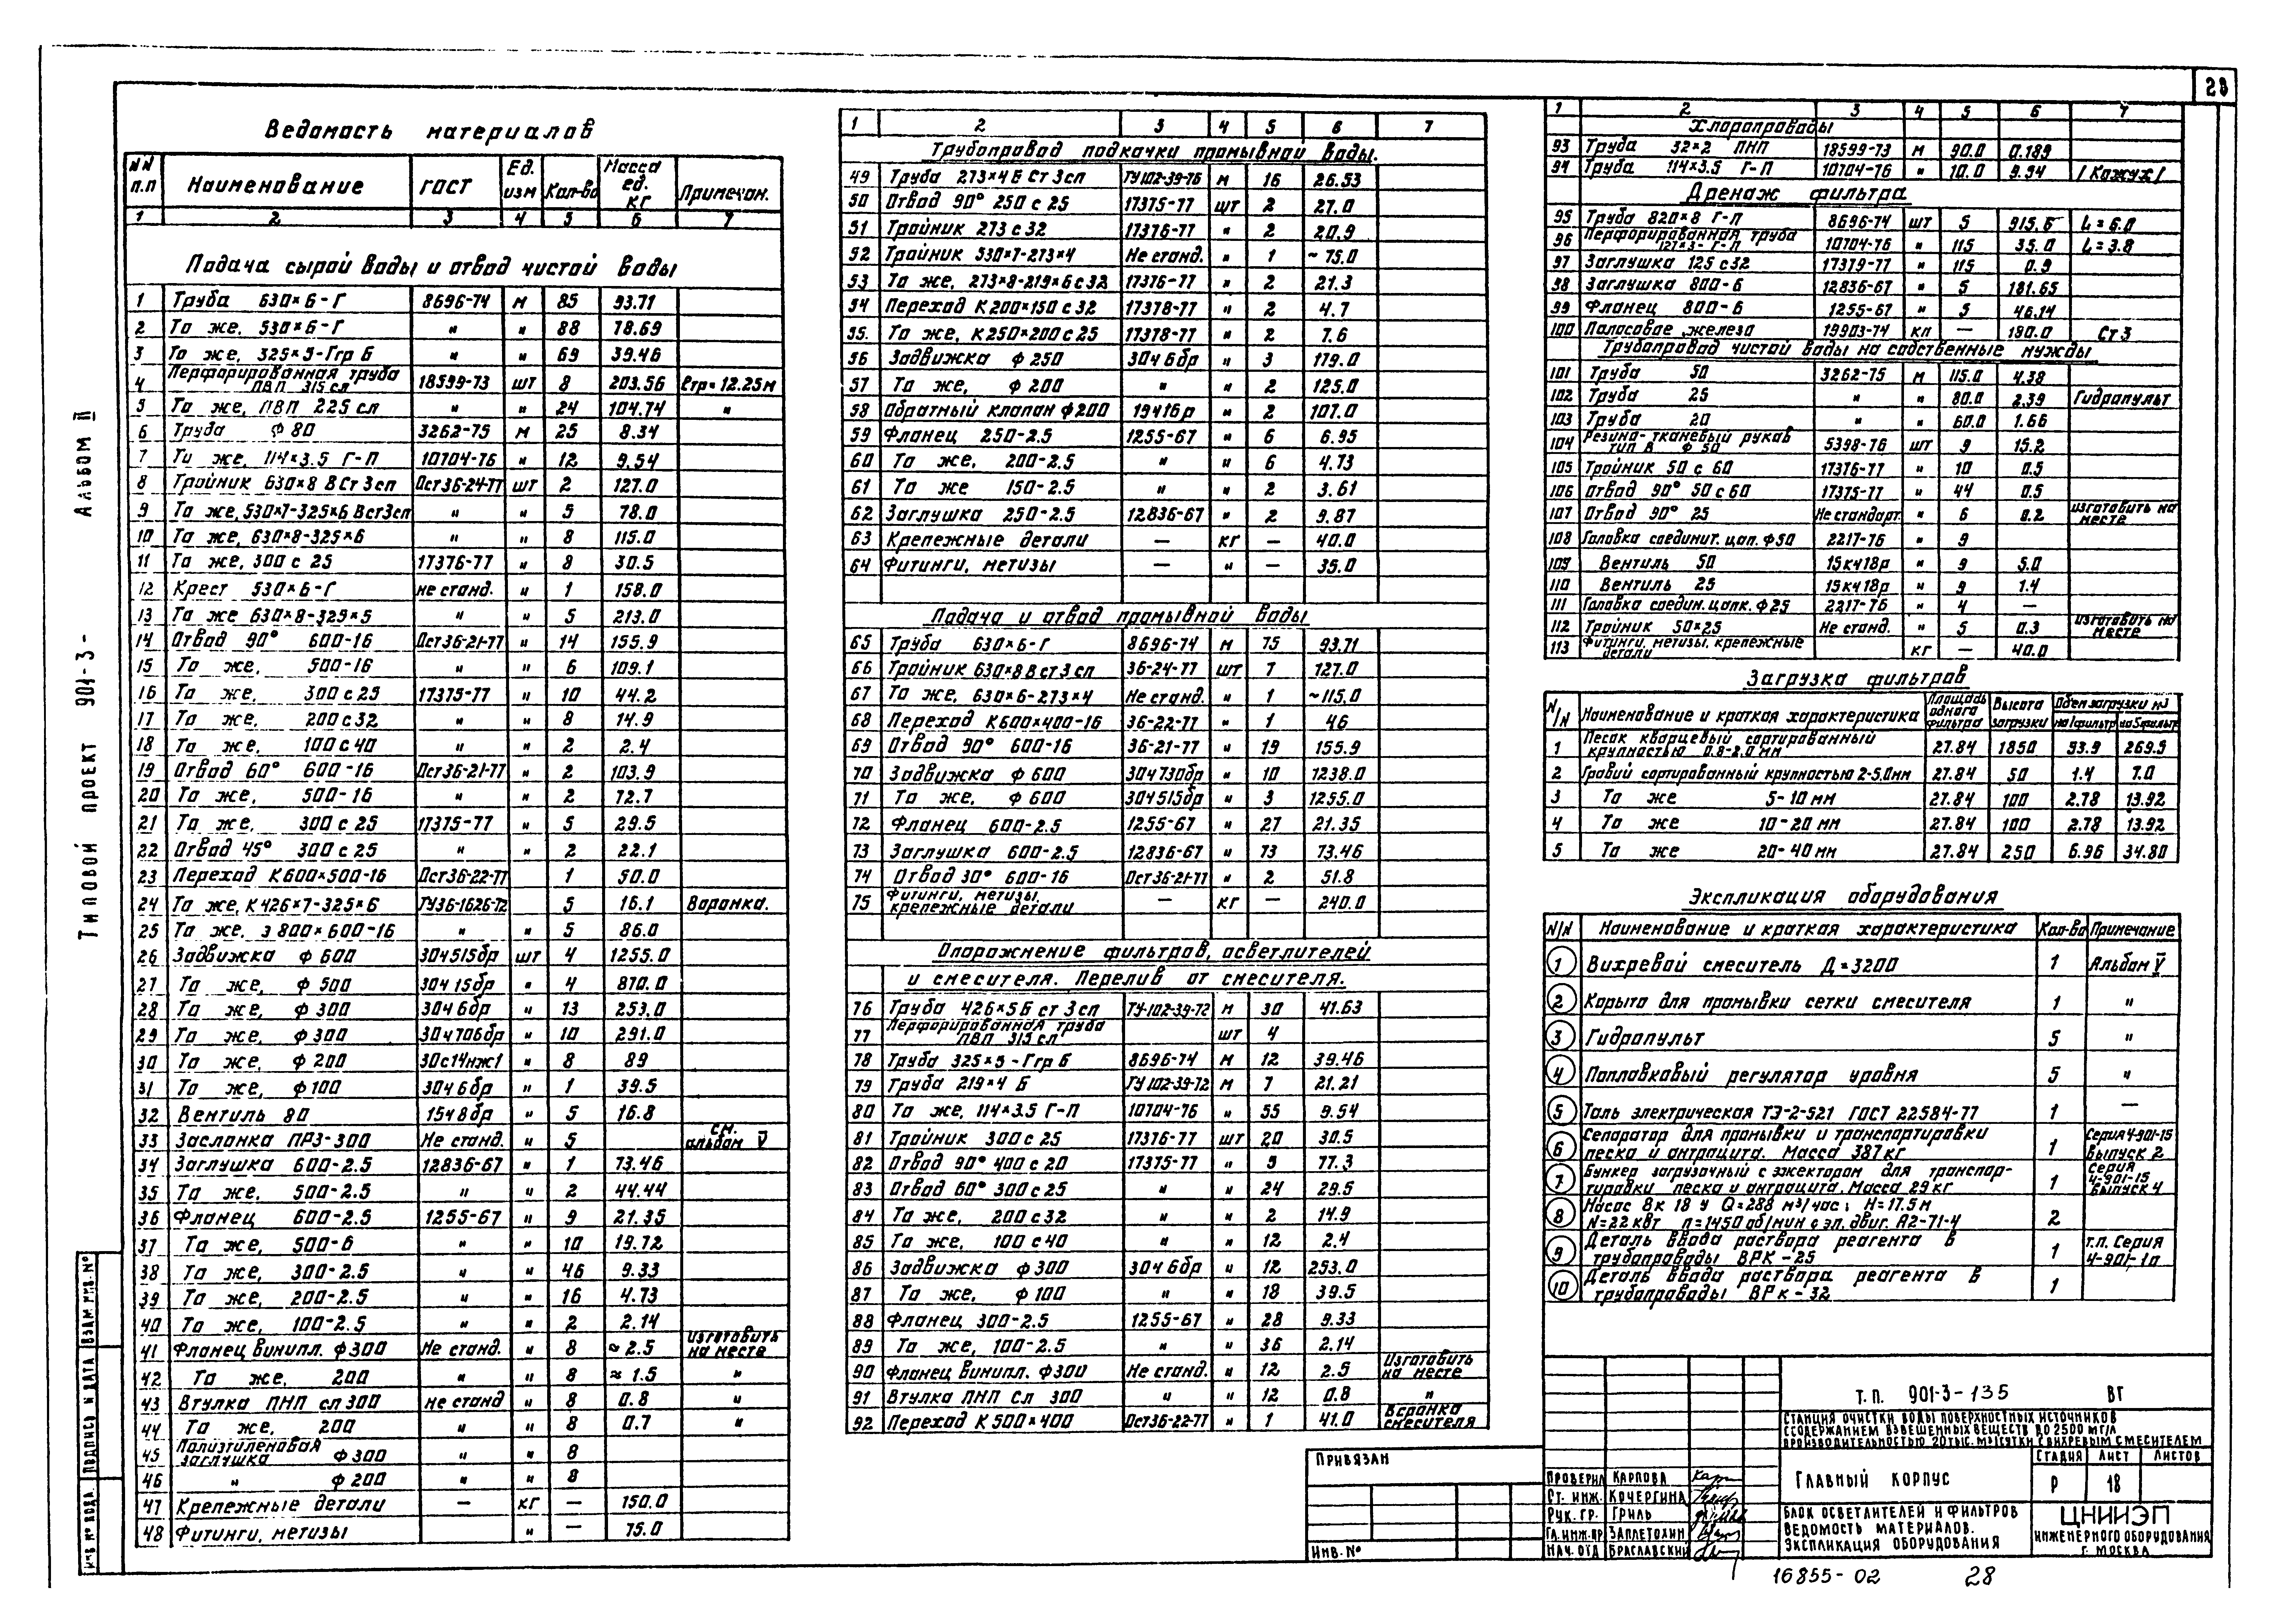 28
Альбом II
Типовой проект 901-3-
Ведомость материалов
NN п.п | Наименование | ГОСТ | Ед. изм | Кол-во | Масса ед. кг | Примечан.
1 | 2 | 3 | 4 | 5 | 6 | 7
Подача сырой воды и отвод чистой воды
1 | Труба 630×6-Г | 8696-74 | м | 85 | 93.71
2 | То же, 530×6-Г | " | " | 88 | 78.69
3 | То же, 325×5-Ггр Б | " | " | 69 | 39.46
4 | Перфорированная труба ПВП 315 сл | 18599-73 | шт | 8 | 203.56 | ℓтр=12.25м
5 | То же, ПВП 225 сл | " | " | 24 | 104.74 | "
6 | Труба ф 80 | 3262-75 | м | 25 | 8.34
7 | То же, 114×3.5 Г-П | 10704-76 | " | 12 | 9.54
8 | Тройник 630×8 В Ст 3 сп | Ост36-24-77 | шт | 2 | 127.0
9 | То же, 530×7-325×6 Вст3сп | " | " | 5 | 78.0
10 | То же, 630×8-325×6 | " | " | 8 | 115.0
11 | То же, 300 с 25 | 17376-77 | " | 8 | 30.5
12 | Крест 530×6-Г | не станд. | " | 1 | 158.0
13 | То же 630×8-325×5 | " | " | 5 | 213.0
14 | Отвод 90° 600-16 | Ост36-21-77 | " | 14 | 155.9
15 | То же, 500-16 | " | " | 6 | 109.1
16 | То же, 300 с 25 | 17375-77 | " | 10 | 44.2
17 | То же, 200 с 32 | " | " | 8 | 14.9
18 | То же, 100 с 40 | " | " | 2 | 2.4
19 | Отвод 60° 600-16 | Ост36-21-77 | " | 2 | 103.9
20 | То же, 500-16 | " | " | 2 | 72.7
21 | То же, 300 с 25 | 17375-77 | " | 5 | 29.5
22 | Отвод 45° 300 с 25 | " | " | 2 | 22.1
23 | Переход К600×500-16 | Ост36-22-77 | 1 | 50.0
24 | То же, К 426×7-325×6 | ТУ36-1626-72 | 5 | 16.1 | Воронка.
25 | То же, э 800×600-16 | " | " | 5 | 86.0
26 | Задвижка ф 600 | 30ч515бр | шт | 4 | 1255.0
27 | То же, ф 500 | 30ч 15бр | " | 4 | 870.0
28 | То же, ф 300 | 30ч 6бр | " | 13 | 253.0
29 | То же, ф 300 | 30ч706бр | " | 10 | 291.0
30 | То же, ф 200 | 30с14нж1 | " | 8 | 89
31 | То же, ф 100 | 30ч 6бр | " | 1 | 39.5
32 | Вентиль 80 | 15ч 8бр | " | 5 | 16.8
33 | Заслонка ПРЗ-300 | Не станд. | " | 5 | см. альбом V
34 | Заглушка 600-2.5 | 12836-67 | " | 1 | 73.46
35 | То же, 500-2.5 | " | " | 2 | 44.44
36 | Фланец 600-2.5 | 1255-67 | " | 9 | 21.35
37 | То же, 500-6 | " | " | 10 | 19.72
38 | То же, 300-2.5 | " | " | 46 | 9.33
39 | То же, 200-2.5 | " | " | 16 | 4.73
40 | То же, 100-2.5 | " | " | 2 | 2.14
41 | Фланец винипл. ф300 | Не станд. | " | 8 | ≈ 2.5 | изготовить на месте
42 | То же, 200 | " | " | 8 | ≈ 1.5 | "
43 | Втулка ПНП сл 300 | не станд | " | 8 | 0.8 | "
44 | То же, 200 | " | " | 8 | 0.7 | "
45 | Полиэтиленовая заглушка ф300 | " | " | 8
46 | " ф 200 | " | " | 8
47 | Крепежные детали | — | кг | — | 150.0
48 | Фитинги, метизы | " | — | 75.0
1 | 2 | 3 | 4 | 5 | 6 | 7
Трубопровод подкачки промывной воды.
49 | Труба 273×4 Б Ст 3сп | ТУ102-39-76 | м | 16 | 26.53
50 | Отвод 90° 250 с 25 | 17375-77 | шт | 2 | 27.0
51 | Тройник 273 с 32 | 17376-77 | " | 2 | 20.9
52 | Тройник 530×7-273×4 | Не станд. | " | 1 | ~ 75.0
53 | То же, 273×8-219×6 с 32 | 17376-77 | " | 2 | 21.3
54 | Переход К200×150 с 32 | 17378-77 | " | 2 | 4.7
55. | То же, К250×200 с 25 | 17378-77 | " | 2 | 7.6
56 | Задвижка ф 250 | 30ч 6бр | " | 3 | 179.0
57 | То же, ф 200 | " | " | 2 | 125.0
58 | Обратный клапан ф200 | 19ч16р | " | 2 | 107.0
59 | Фланец 250-2.5 | 1255-67 | " | 6 | 6.95
60 | То же, 200-2.5 | " | " | 6 | 4.73
61 | То же 150-2.5 | " | " | 2 | 3.61
62 | Заглушка 250-2.5 | 12836-67 | " | 2 | 9.87
63 | Крепежные детали | — | кг | — | 40.0
64 | Фитинги, метизы | — | " | — | 35.0
Подача и отвод промывной воды
65 | Труба 630×6-Г | 8696-74 | м | 75 | 93.71
66 | Тройник 630×8 В ст 3 сп | 36-24-77 | шт | 7 | 127.0
67 | То же, 630×6-273×4 | Не станд. | " | 1 | ~115.0
68 | Переход К600×400-16 | 36-22-77 | " | 1 | 46
69 | Отвод 90° 600-16 | 36-21-77 | " | 19 | 155.9
70 | Задвижка ф 600 | 30ч730бр | " | 10 | 1238.0
71 | То же, ф 600 | 30ч515бр | " | 3 | 1255.0
72 | Фланец 600-2.5 | 1255-67 | " | 27 | 21.35
73 | Заглушка 600-2.5 | 12836-67 | " | 73 | 73.46
74 | Отвод 30° 600-16 | Ост36-21-77 | " | 2 | 51.8
75 | Фитинги, метизы, крепежные детали | — | кг | — | 240.0
Опорожнение фильтров, осветлителей
и смесителя. Перелив от смесителя.
76 | Труба 426×5 Б ст 3 сп | ТУ-102-39-72 | м | 30 | 41.63
77 | Перфорированная труба ПВП 315 сл | шт | 4
78 | Труба 325×5-Ггр Б | 8696-74 | м | 12 | 39.46
79 | Труба 219×4 Б | ТУ 102-39-72 | м | 7 | 21.21
80 | То же, 114×3.5 Г-П | 10704-76 | " | 55 | 9.54
81 | Тройник 300 с 25 | 17376-77 | шт | 20 | 30.5
82 | Отвод 90° 400 с 20 | 17375-77 | " | 5 | 77.3
83 | Отвод 60° 300 с 25 | " | " | 24 | 29.5
84 | То же, 200 с 32 | " | " | 2 | 14.9
85 | То же, 100 с 40 | " | " | 12 | 2.4
86 | Задвижка ф300 | 30ч 6бр | " | 12 | 253.0
87 | То же, ф 100 | " | " | 18 | 39.5
88 | Фланец 300-2.5 | 1255-67 | " | 28 | 9.33
89 | То же, 100-2.5 | " | 36 | 2.14
90 | Фланец винипл. ф300 | Не станд. | " | 12 | 2.5 | Изготовить на месте
91 | Втулка ПНП Сл 300 | " | " | 12 | 0.8 | "
92 | Переход К 500×400 | Ост36-22-77 | " | 1 | 41.0 | Воронка смесителя
1 | 2 | 3 | 4 | 5 | 6 | 7
Хлоропроводы
93 | Труба 32×2 ПНП | 18599-73 | м | 90.0 | 0.189
94 | Труба 114×3.5 Г-П | 10704-76 | " | 10.0 | 9.54 | /Кожух/
Дренаж фильтра
95 | Труба 820×8 Г-П | 8696-74 | шт | 5 | 915.6 | L=6.0
96 | Перфорированная труба 127×3-Г-П | 10704-76 | " | 115 | 35.0 | L=3.8
97 | Заглушка 125 с 32 | 17379-77 | " | 115 | 0.9
98 | Заглушка 800-6 | 12836-67 | " | 5 | 181.65
99 | Фланец 800-6 | 1255-67 | " | 5 | 46.14
100 | Полосовое железо | 19903-74 | кл | — | 180.0 | Ст 3
Трубопровод чистой воды на собственные нужды
101 | Труба 50 | 3262-75 | м | 115.0 | 4.38
102 | Труба 25 | " | " | 80.0 | 2.39 | Гидропульт
103 | Труба 20 | " | " | 60.0 | 1.66
104 | Резино-тканевый рукав тип В ф 50 | 5398-76 | шт | 9 | 15.2
105 | Тройник 50 с 60 | 17376-77 | " | 10 | 0.5
106 | Отвод 90° 50 с 60 | 17375-77 | " | 44 | 0.5
107 | Отвод 90° 25 | Не стандарт. | " | 6 | 0.2 | изготовить на месте
108 | Головка соединит. цап. ф50 | 2217-76 | " | 9
109 | Вентиль 50 | 15кч18р | " | 9 | 5.0
110 | Вентиль 25 | 15кч18р | " | 9 | 1.4
111 | Головка соедин. цапк. ф25 | 2217-76 | " | 4 | —
112 | Тройник 50×25 | Не станд. | " | 5 | 0.3 | изготовить на месте
113 | Фитинги, метизы, крепежные детали | кг | — | 40.0
Загрузка фильтров
N/N | Наименование и краткая характеристика | Площадь одного фильтра | Высота загрузки | Объем загрузки м3 | на 1 фильтр | на 5 фильтр
1 | Песок кварцевый сортированный крупностью 0.8-2.0 мм | 27.84 | 1850 | 53.9 | 269.5
2 | Гравий сортированный крупностью 2-5.0мм | 27.84 | 50 | 1.4 | 7.0
3 | То же 5-10 мм | 27.84 | 100 | 2.78 | 13.92
4 | То же 10-20 мм | 27.84 | 100 | 2.78 | 13.92
5 | То же 20-40 мм | 27.84 | 250 | 6.96 | 34.80
Экспликация оборудования
N/N | Наименование и краткая характеристика | Кол-во | Примечание
1 | Вихревой смеситель Д=3200 | 1 | Альбом V
2 | Корыто для промывки сетки смесителя | 1 | "
3 | Гидропульт | 5 | "
4 | Поплавковый регулятор уровня | 5 | "
5 | Таль электрическая ТЭ-2-521 ГОСТ 22584-77 | 1 | —
6 | Сепаратор для промывки и транспортировки песка и антрацита. Масса 387кг | 1 | Серия 4-901-15 Выпуск 2
7 | Бункер загрузочный с эжектором для транспортировки песка и антрацита. Масса 29 кг | 1 | Серия 4-901-15 Выпуск 4
8 | Насос 8к 18 у Q=288 м³/час; H=17.5 м N=22 квт n=1450 об/мин с эл. двиг. А2-71-4 | 2
9 | Деталь ввода раствора реагента в трубопроводы ВРК-25 | 1 | т.п. Серия 4-901-1а
10 | Деталь ввода раствора реагента в трубопроводы ВРк-32 | 1
Т.П. 901-3-135 ВГ
Станция очистки воды поверхностных источников
с содержанием взвешенных веществ до 2500 мг/л
производительностью 20тыс. м³/сутки с вихревым смесителем
Главный корпус
Стадия | Лист | Листов
Р | 18
Блок осветлителей и фильтров
Ведомость материалов.
Экспликация оборудования
ЦНИИЭП
инженерного оборудования
г. Москва
Привязан
Инв. №
Проверил Карпова
Ст. инж. Кочергина
Рук. гр. Гриль
Гл. инж. пр Заплетохин
Нач. отд Браславский
Инв № подл. | Подпись и дата | Взам инв. №
16855-02
28